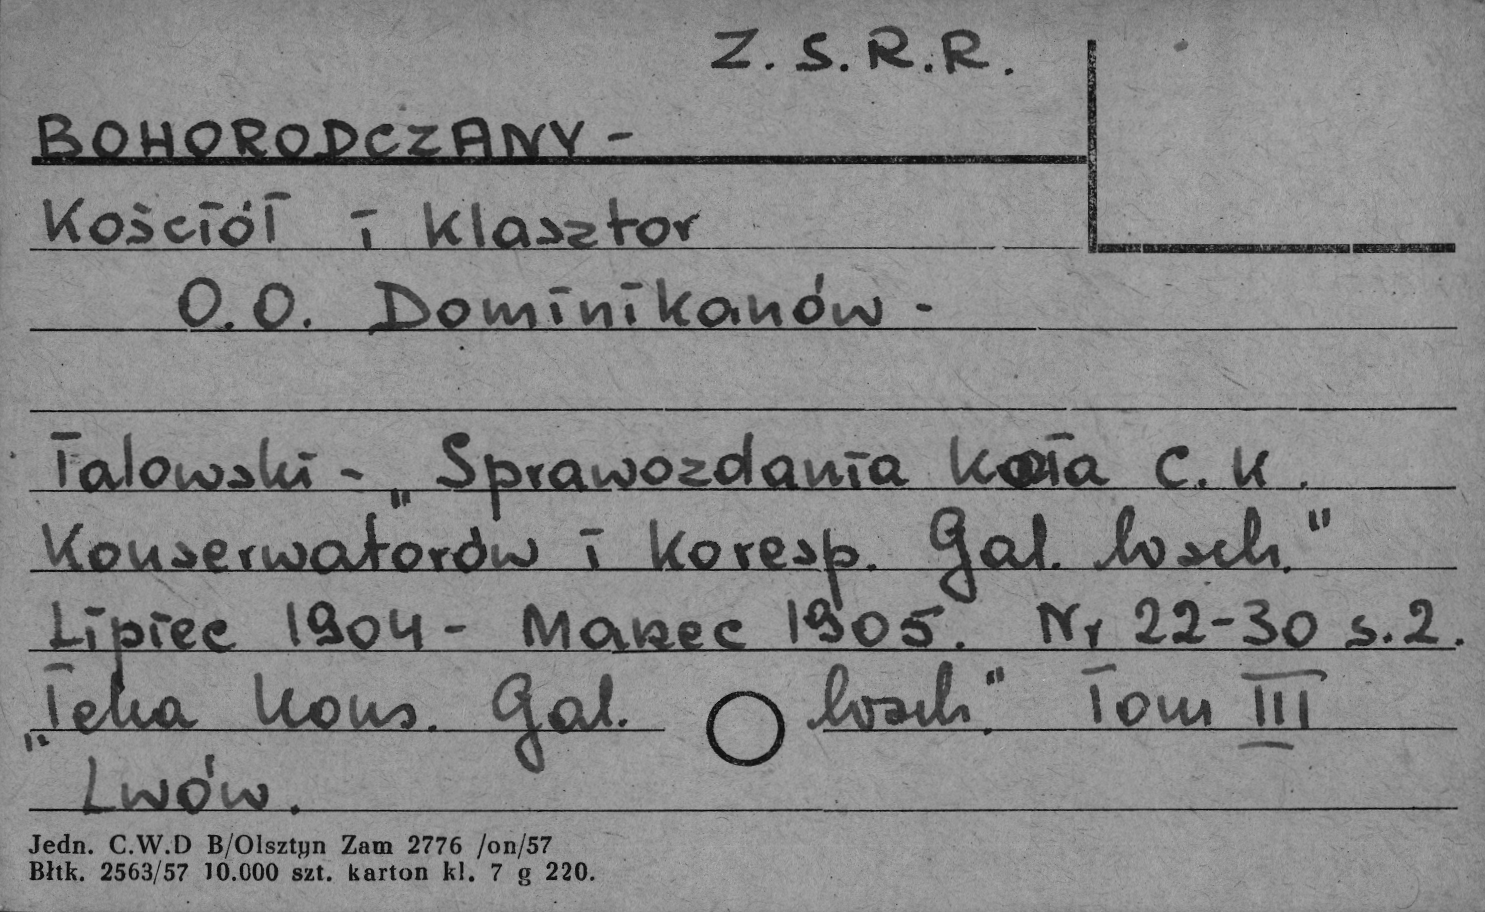 Z.S.R.R.
BOHORODCZANY -
Kościół i klasztor
O.O. Dominikanów -
Talowski - „Sprawozdania koła C.K.
Konserwatorów i koresp. Gal. wsch."
Lipiec 1904 - Marzec 1905. Nr 22-30 s.2.
„Teka Kons. Gal. wsch." Tom III
Lwów.
Jedn. C.W.D B/Olsztyn Zam 2776 /on/57
Błtk. 2563/57 10.000 szt. karton kl. 7 g 220.